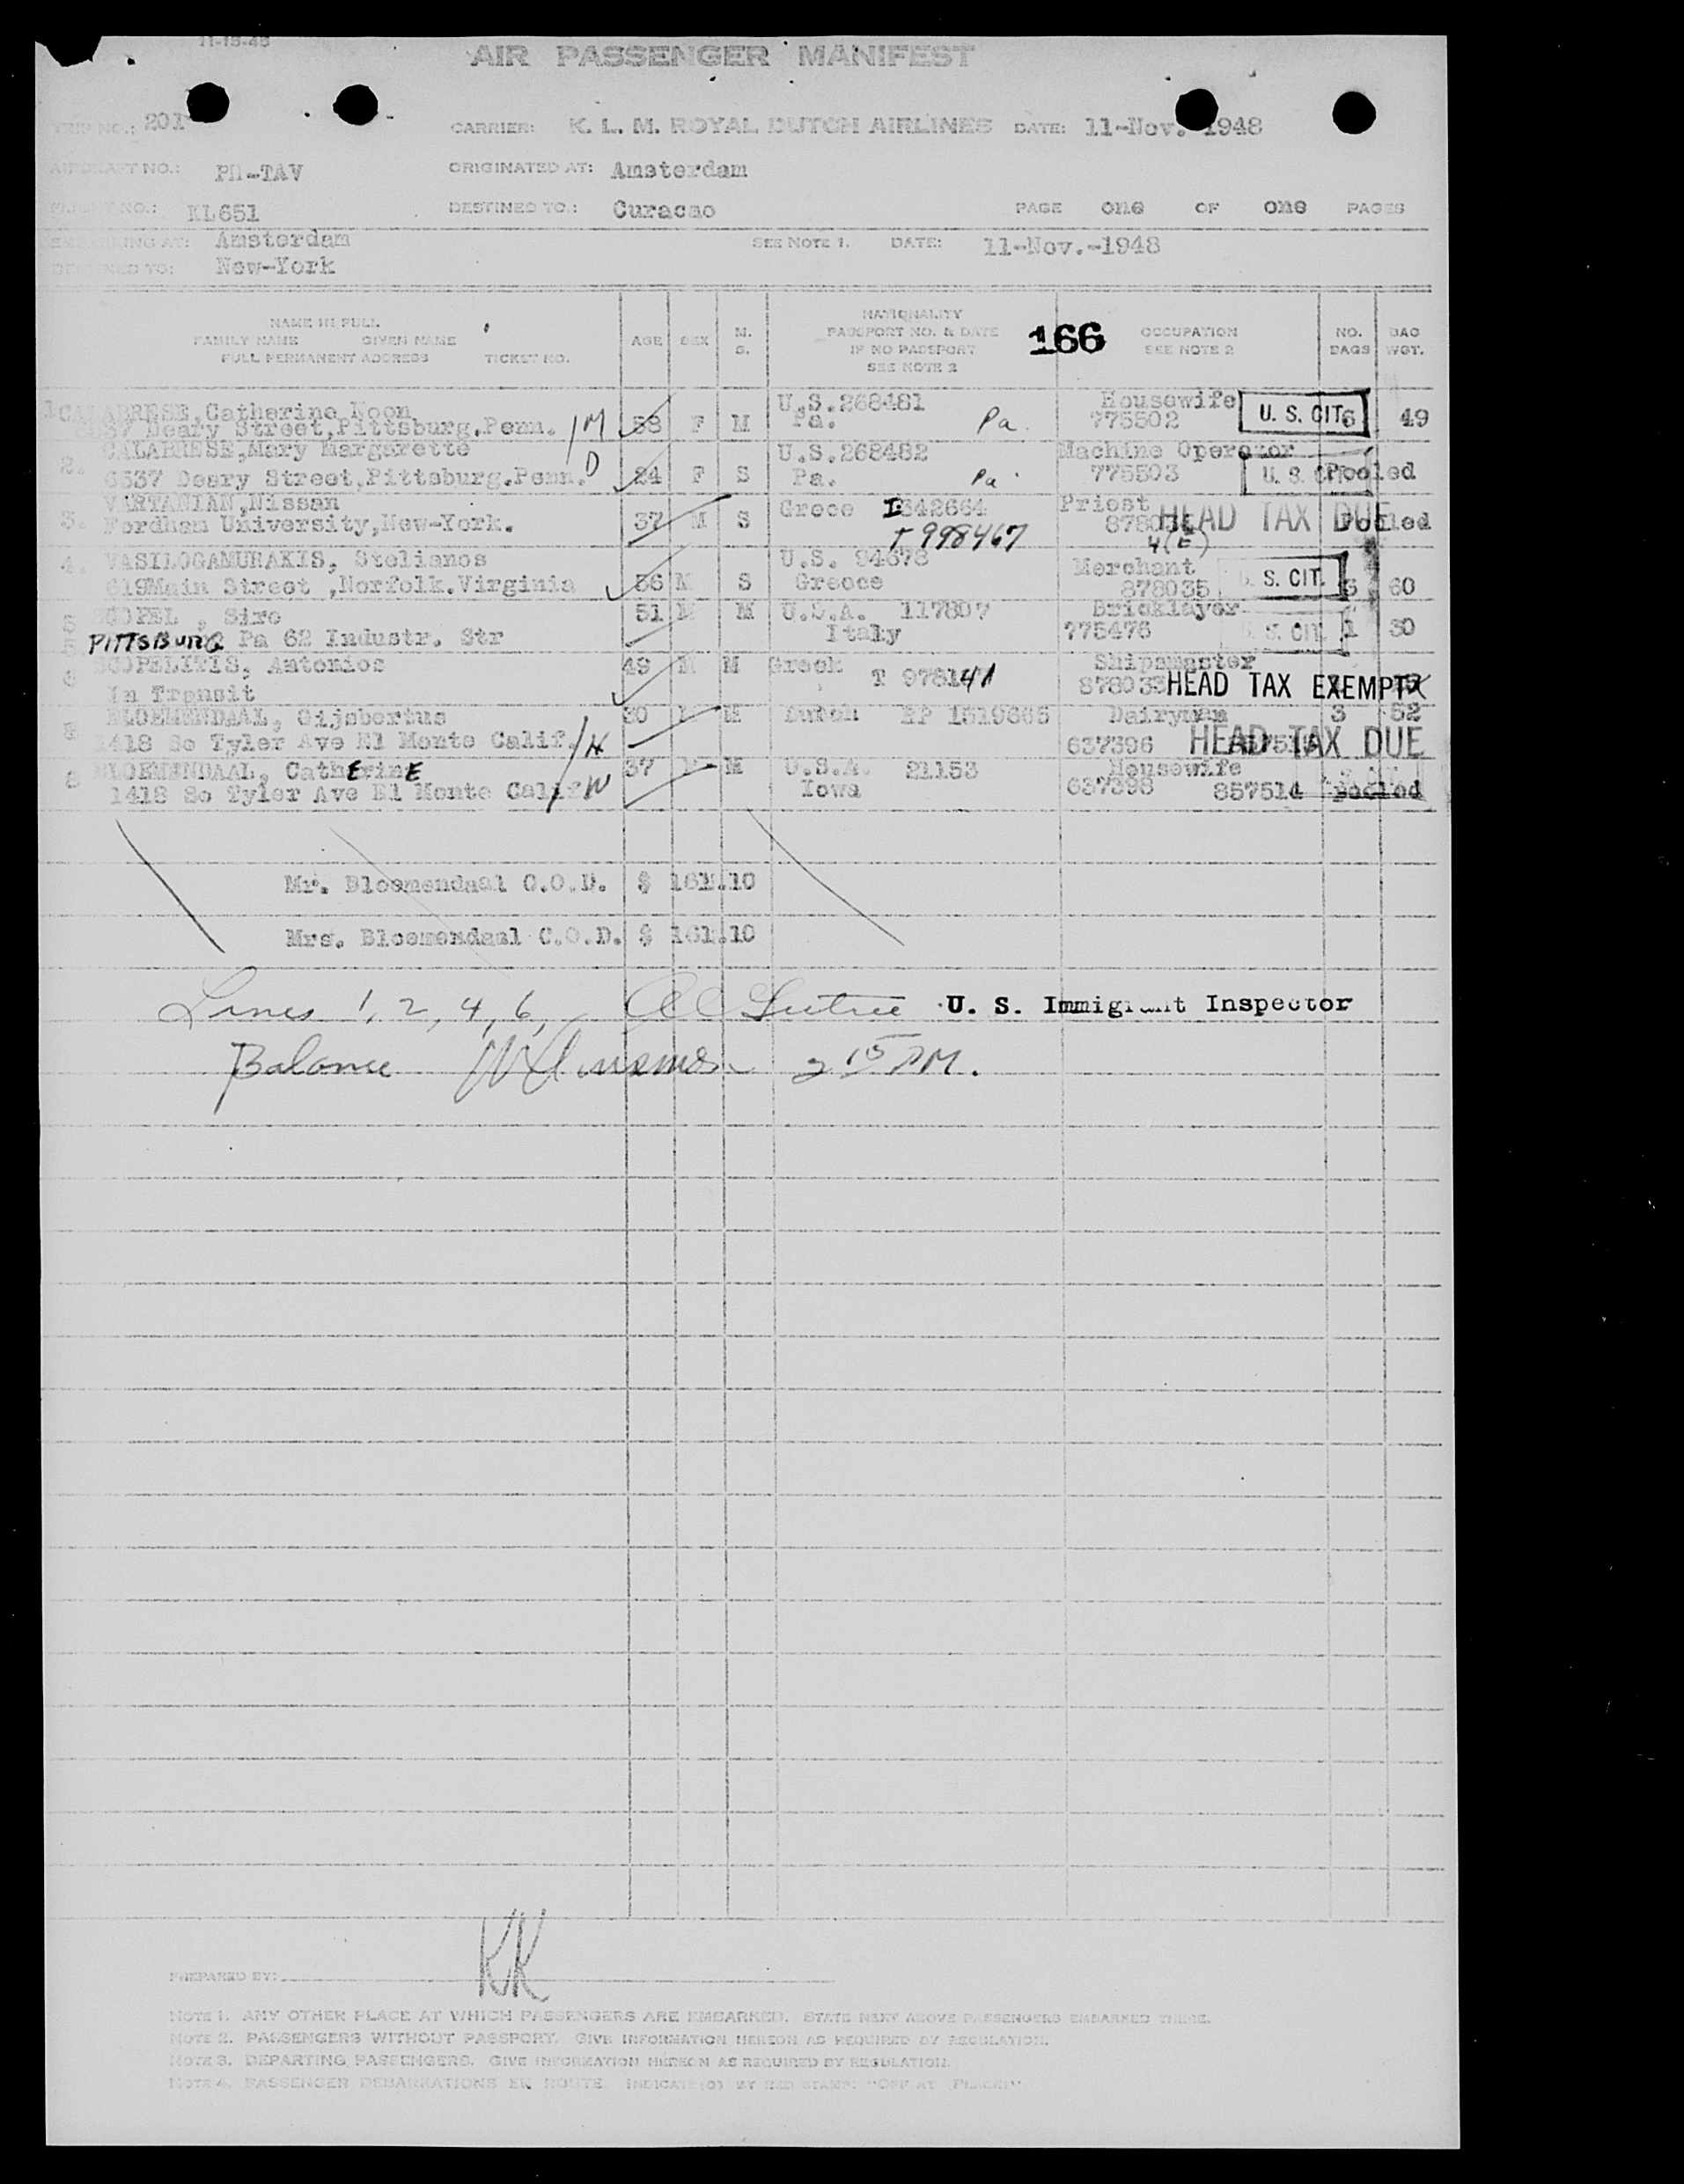 11-13-48
AIR PASSENGER MANIFEST
TRIP NO.: 201 CARRIER: K. L. M. ROYAL DUTCH AIRLINES DATE: 11-Nov. 1948
AIRCRAFT NO.: PH-TAV ORIGINATED AT: Amsterdam
FLIGHT NO.: KL651 DESTINED TO: Curacao PAGE one OF one PAGES
AT: Amsterdam SEE NOTE 1. DATE: 11-Nov.-1948
DESTINED TO: New-York
NAME IN FULL
FAMILY NAME GIVEN NAME
FULL PERMANENT ADDRESS TICKET NO.
AGE SEX M. S.
NATIONALITY
PASSPORT NO. & DATE
IF NO PASSPORT
SEE NOTE 2
166
OCCUPATION
SEE NOTE 2
NO. BAGS BAG WGT.
1 CALABRESE, Catherine Noon U.S. 268481 Housewife
Deary Street, Pittsburg. Penn. /M 58 F M Pa. Pa. 775502 U. S. CIT. 6 49
2. CALABRESE, Mary Margarette U.S. 268482 Machine Operator
6337 Deary Street, Pittsburg. Penn. D 24 F S Pa. Pa. 775503 U. S. CIT. Pooled
3. VARTANIAN, Nissan Grece I 342664 Priest
Fordham University, New-York. 37 M S T 998467 HEAD TAX DUE Pooled
4(E)
4. VASILOGAMURAKIS, Stelianos U.S. 94678 Merchant
619 Main Street, Norfolk. Virginia 56 M S Greece 878035 U. S. CIT. 3 60
5 SCOPEL , Siro 51 M M U.S.A. 117807 Bricklayer
PITTSBURG Pa 62 Industr. Str Italy 775476 U. S. CIT. 1 30
6 SCOPELITIS, Antonios 49 M M Greek T 978141 Shipsmaster
In Transit 878033 HEAD TAX EXEMPT
BLOEMENDAAL, Gijsbertus 30 M M Dutch Dairyman 3 52
1418 So Tyler Ave El Monte Calif. /H 637396 HEAD TAX DUE
8 BLOEMENDAAL, CathErinE 37 M U.S.A. 21153 Housewife
1418 So Tyler Ave El Monte Calif /W Iowa 637398 857514 pooled
Mr. Bloemendaal C.O.D. $ 161.10
Mrs. Bloemendaal C.O.D. $ 161.10
Lines 1, 2, 4, 6, U. S. Immigrant Inspector
Balance 2 15 PM.
KK
PREPARED BY:
NOTE 1. ANY OTHER PLACE AT WHICH PASSENGERS ARE EMBARKED. STATE NEXT ABOVE PASSENGERS EMBARKED THERE.
NOTE 2. PASSENGERS WITHOUT PASSPORT. GIVE INFORMATION HEREON AS REQUIRED BY REGULATION.
NOTE 3. DEPARTING PASSENGERS. GIVE INFORMATION HEREON AS REQUIRED BY REGULATION.
NOTE 4. PASSENGER DEBARKATIONS EN ROUTE. INDICATE (O) BY RED STAMP: "OFF AT (PLACE)"